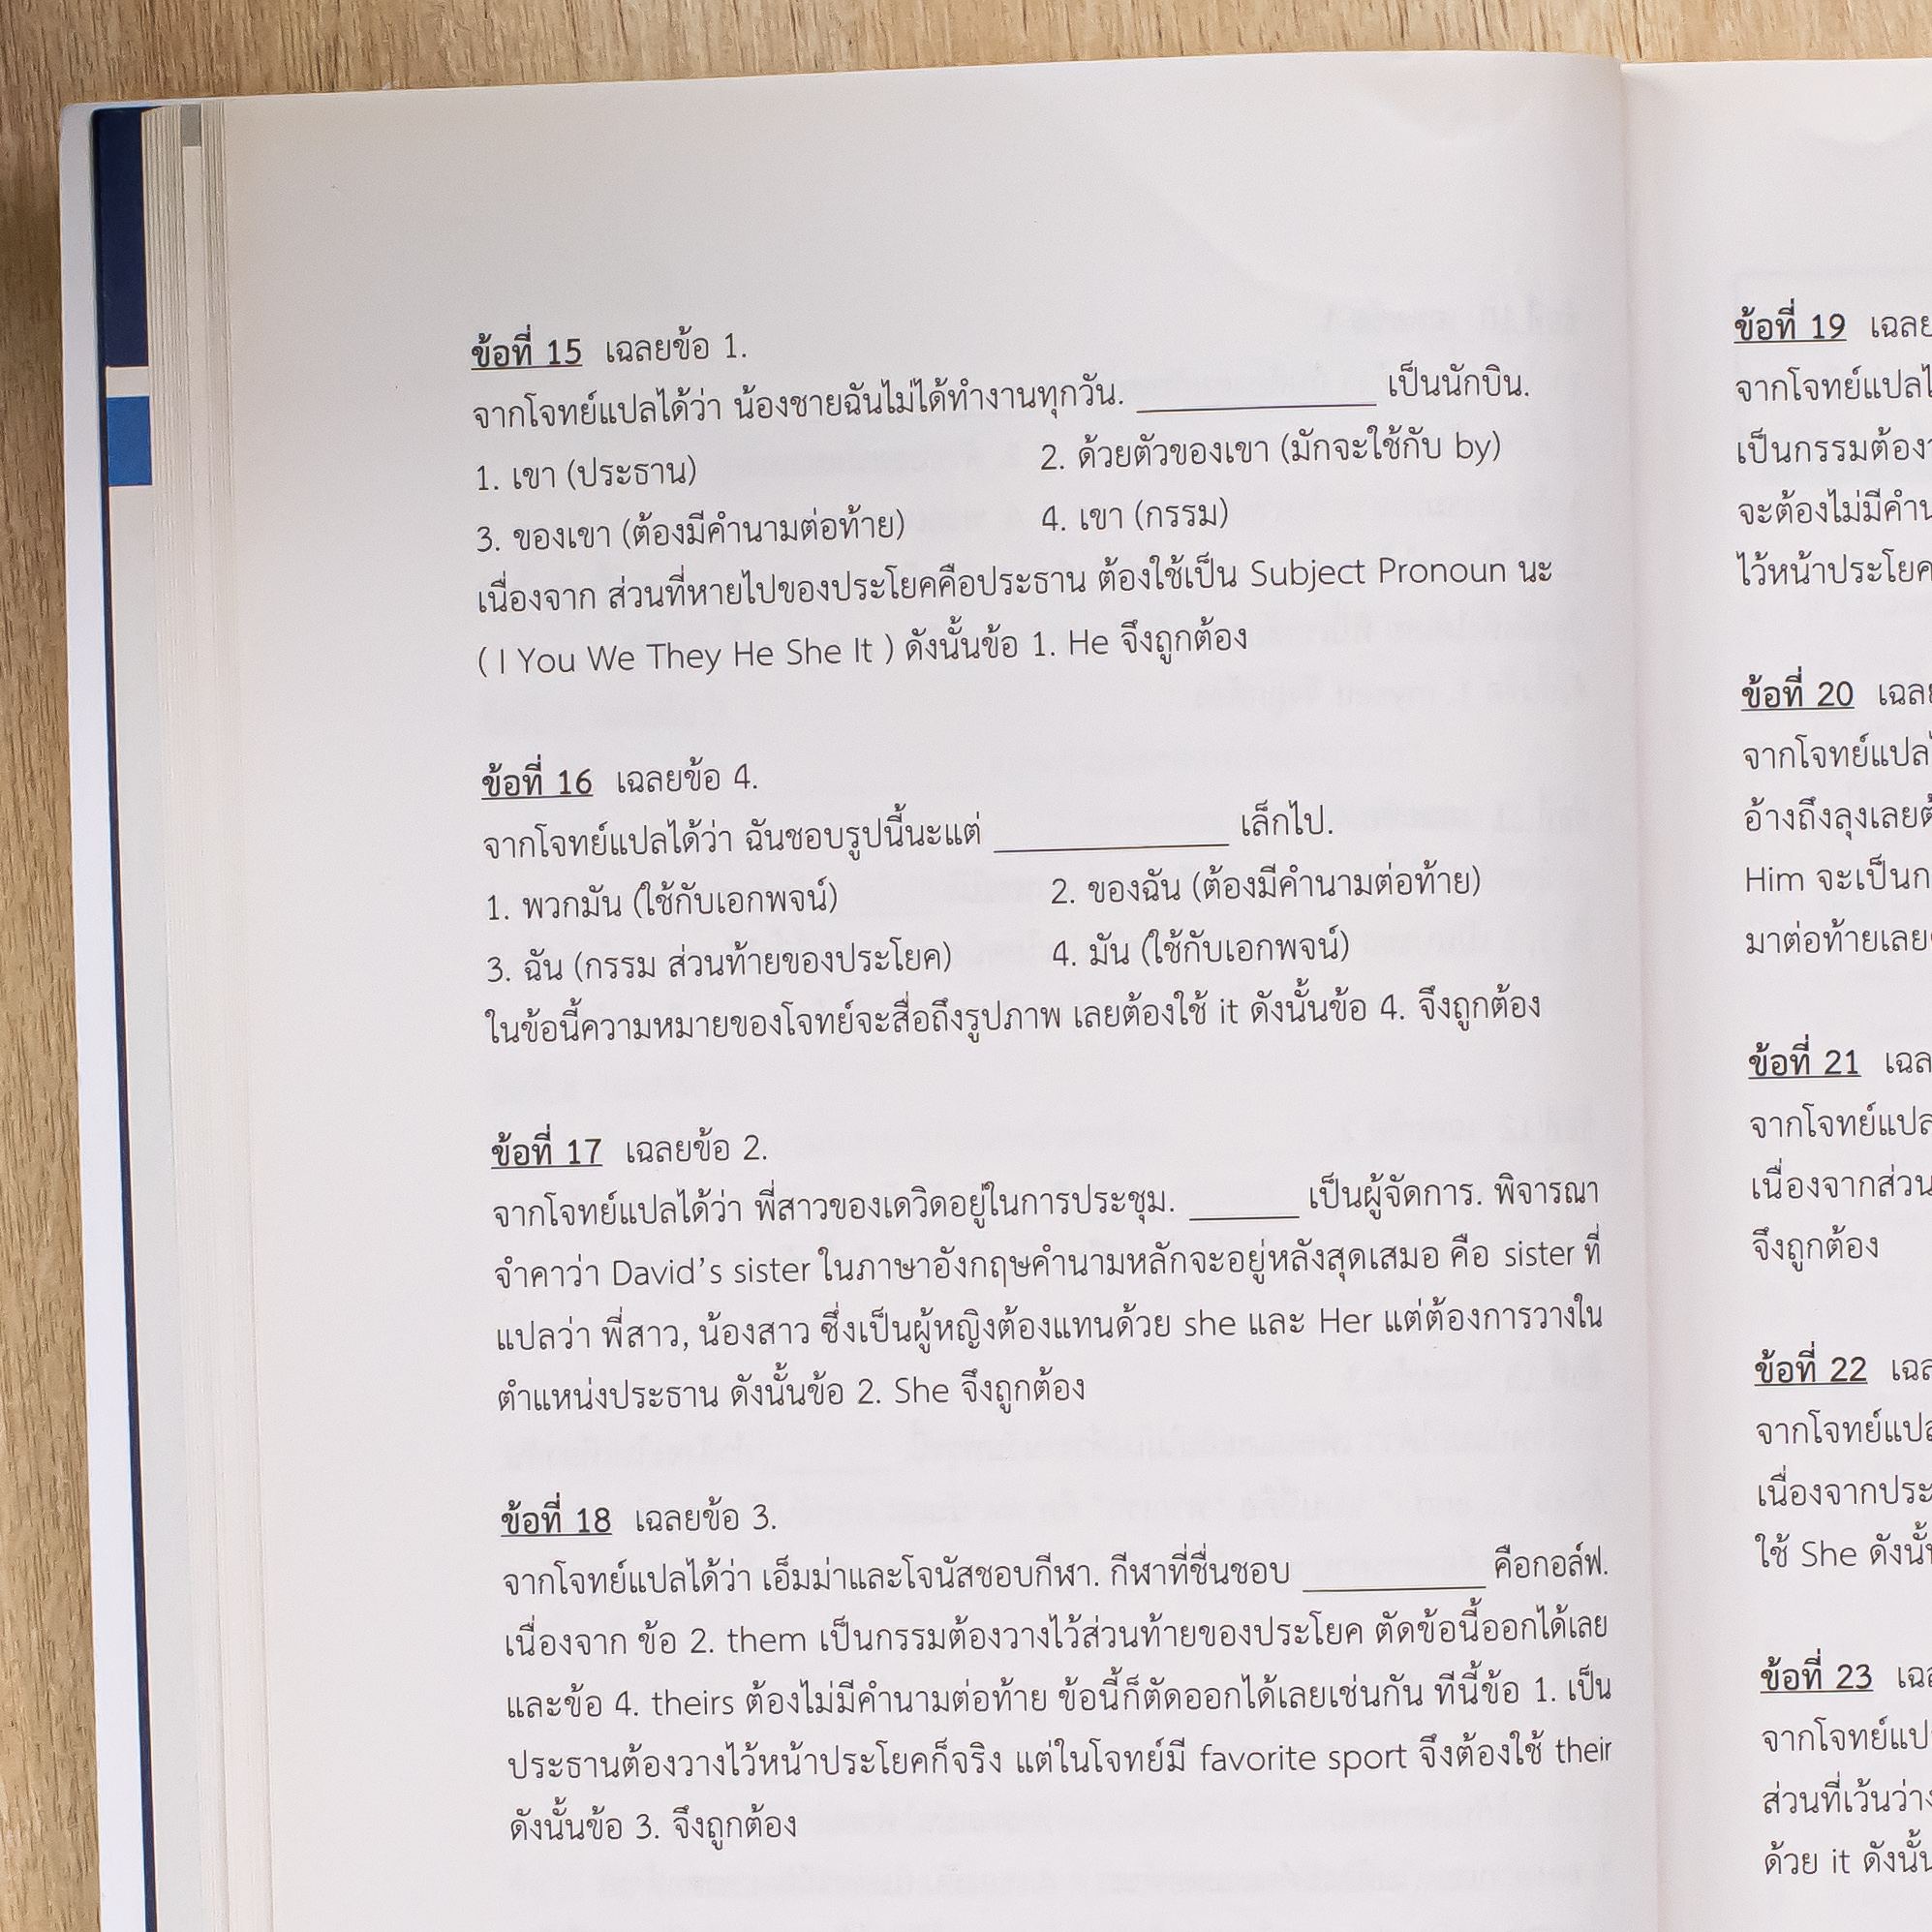 ข้อที่ 15 เฉลยข้อ 1.
จากโจทย์แปลได้ว่า น้องชายฉันไม่ได้ทำงานทุกวัน. ____________ เป็นนักบิน.
1. เขา (ประธาน) 2. ด้วยตัวของเขา (มักจะใช้กับ by)
3. ของเขา (ต้องมีคำนามต่อท้าย) 4. เขา (กรรม)
เนื่องจาก ส่วนที่หายไปของประโยคคือประธาน ต้องใช้เป็น Subject Pronoun นะ
( I You We They He She It ) ดังนั้นข้อ 1. He จึงถูกต้อง
ข้อที่ 16 เฉลยข้อ 4.
จากโจทย์แปลได้ว่า ฉันชอบรูปนี้นะแต่ ____________ เล็กไป.
1. พวกมัน (ใช้กับเอกพจน์) 2. ของฉัน (ต้องมีคำนามต่อท้าย)
3. ฉัน (กรรม ส่วนท้ายของประโยค) 4. มัน (ใช้กับเอกพจน์)
ในข้อนี้ความหมายของโจทย์จะสื่อถึงรูปภาพ เลยต้องใช้ it ดังนั้นข้อ 4. จึงถูกต้อง
ข้อที่ 17 เฉลยข้อ 2.
จากโจทย์แปลได้ว่า พี่สาวของเดวิดอยู่ในการประชุม. ______ เป็นผู้จัดการ. พิจารณา
จำคาว่า David's sister ในภาษาอังกฤษคำนามหลักจะอยู่หลังสุดเสมอ คือ sister ที่
แปลว่า พี่สาว, น้องสาว ซึ่งเป็นผู้หญิงต้องแทนด้วย she และ Her แต่ต้องการวางใน
ตำแหน่งประธาน ดังนั้นข้อ 2. She จึงถูกต้อง
ข้อที่ 18 เฉลยข้อ 3.
จากโจทย์แปลได้ว่า เอ็มม่าและโจนัสชอบกีฬา. กีฬาที่ชื่นชอบ _________ คือกอล์ฟ.
เนื่องจาก ข้อ 2. them เป็นกรรมต้องวางไว้ส่วนท้ายของประโยค ตัดข้อนี้ออกได้เลย
และข้อ 4. theirs ต้องไม่มีคำนามต่อท้าย ข้อนี้ก็ตัดออกได้เลยเช่นกัน ทีนี้ข้อ 1. เป็น
ประธานต้องวางไว้หน้าประโยคก็จริง แต่ในโจทย์มี favorite sport จึงต้องใช้ their
ดังนั้นข้อ 3. จึงถูกต้อง
ข้อที่ 19
เป็นกรรมต้อง
จะต้องไม่มี
ไว้หน้าประโยค
ข้อที่ 20
จากโจทย์แปล
อ้างถึงลุงเลย
Him จะเป็น
มาต่อท้ายเลย
ข้อที่ 21
จากโจทย์
เนื่องจากส่วน
จึงถูกต้อง
ข้อที่ 22
จากโจทย์
เนื่องจาก
ใช้ She
ข้อที่ 23
จากโจทย์
ส่วนที่เว้นว่าง
ด้วย it